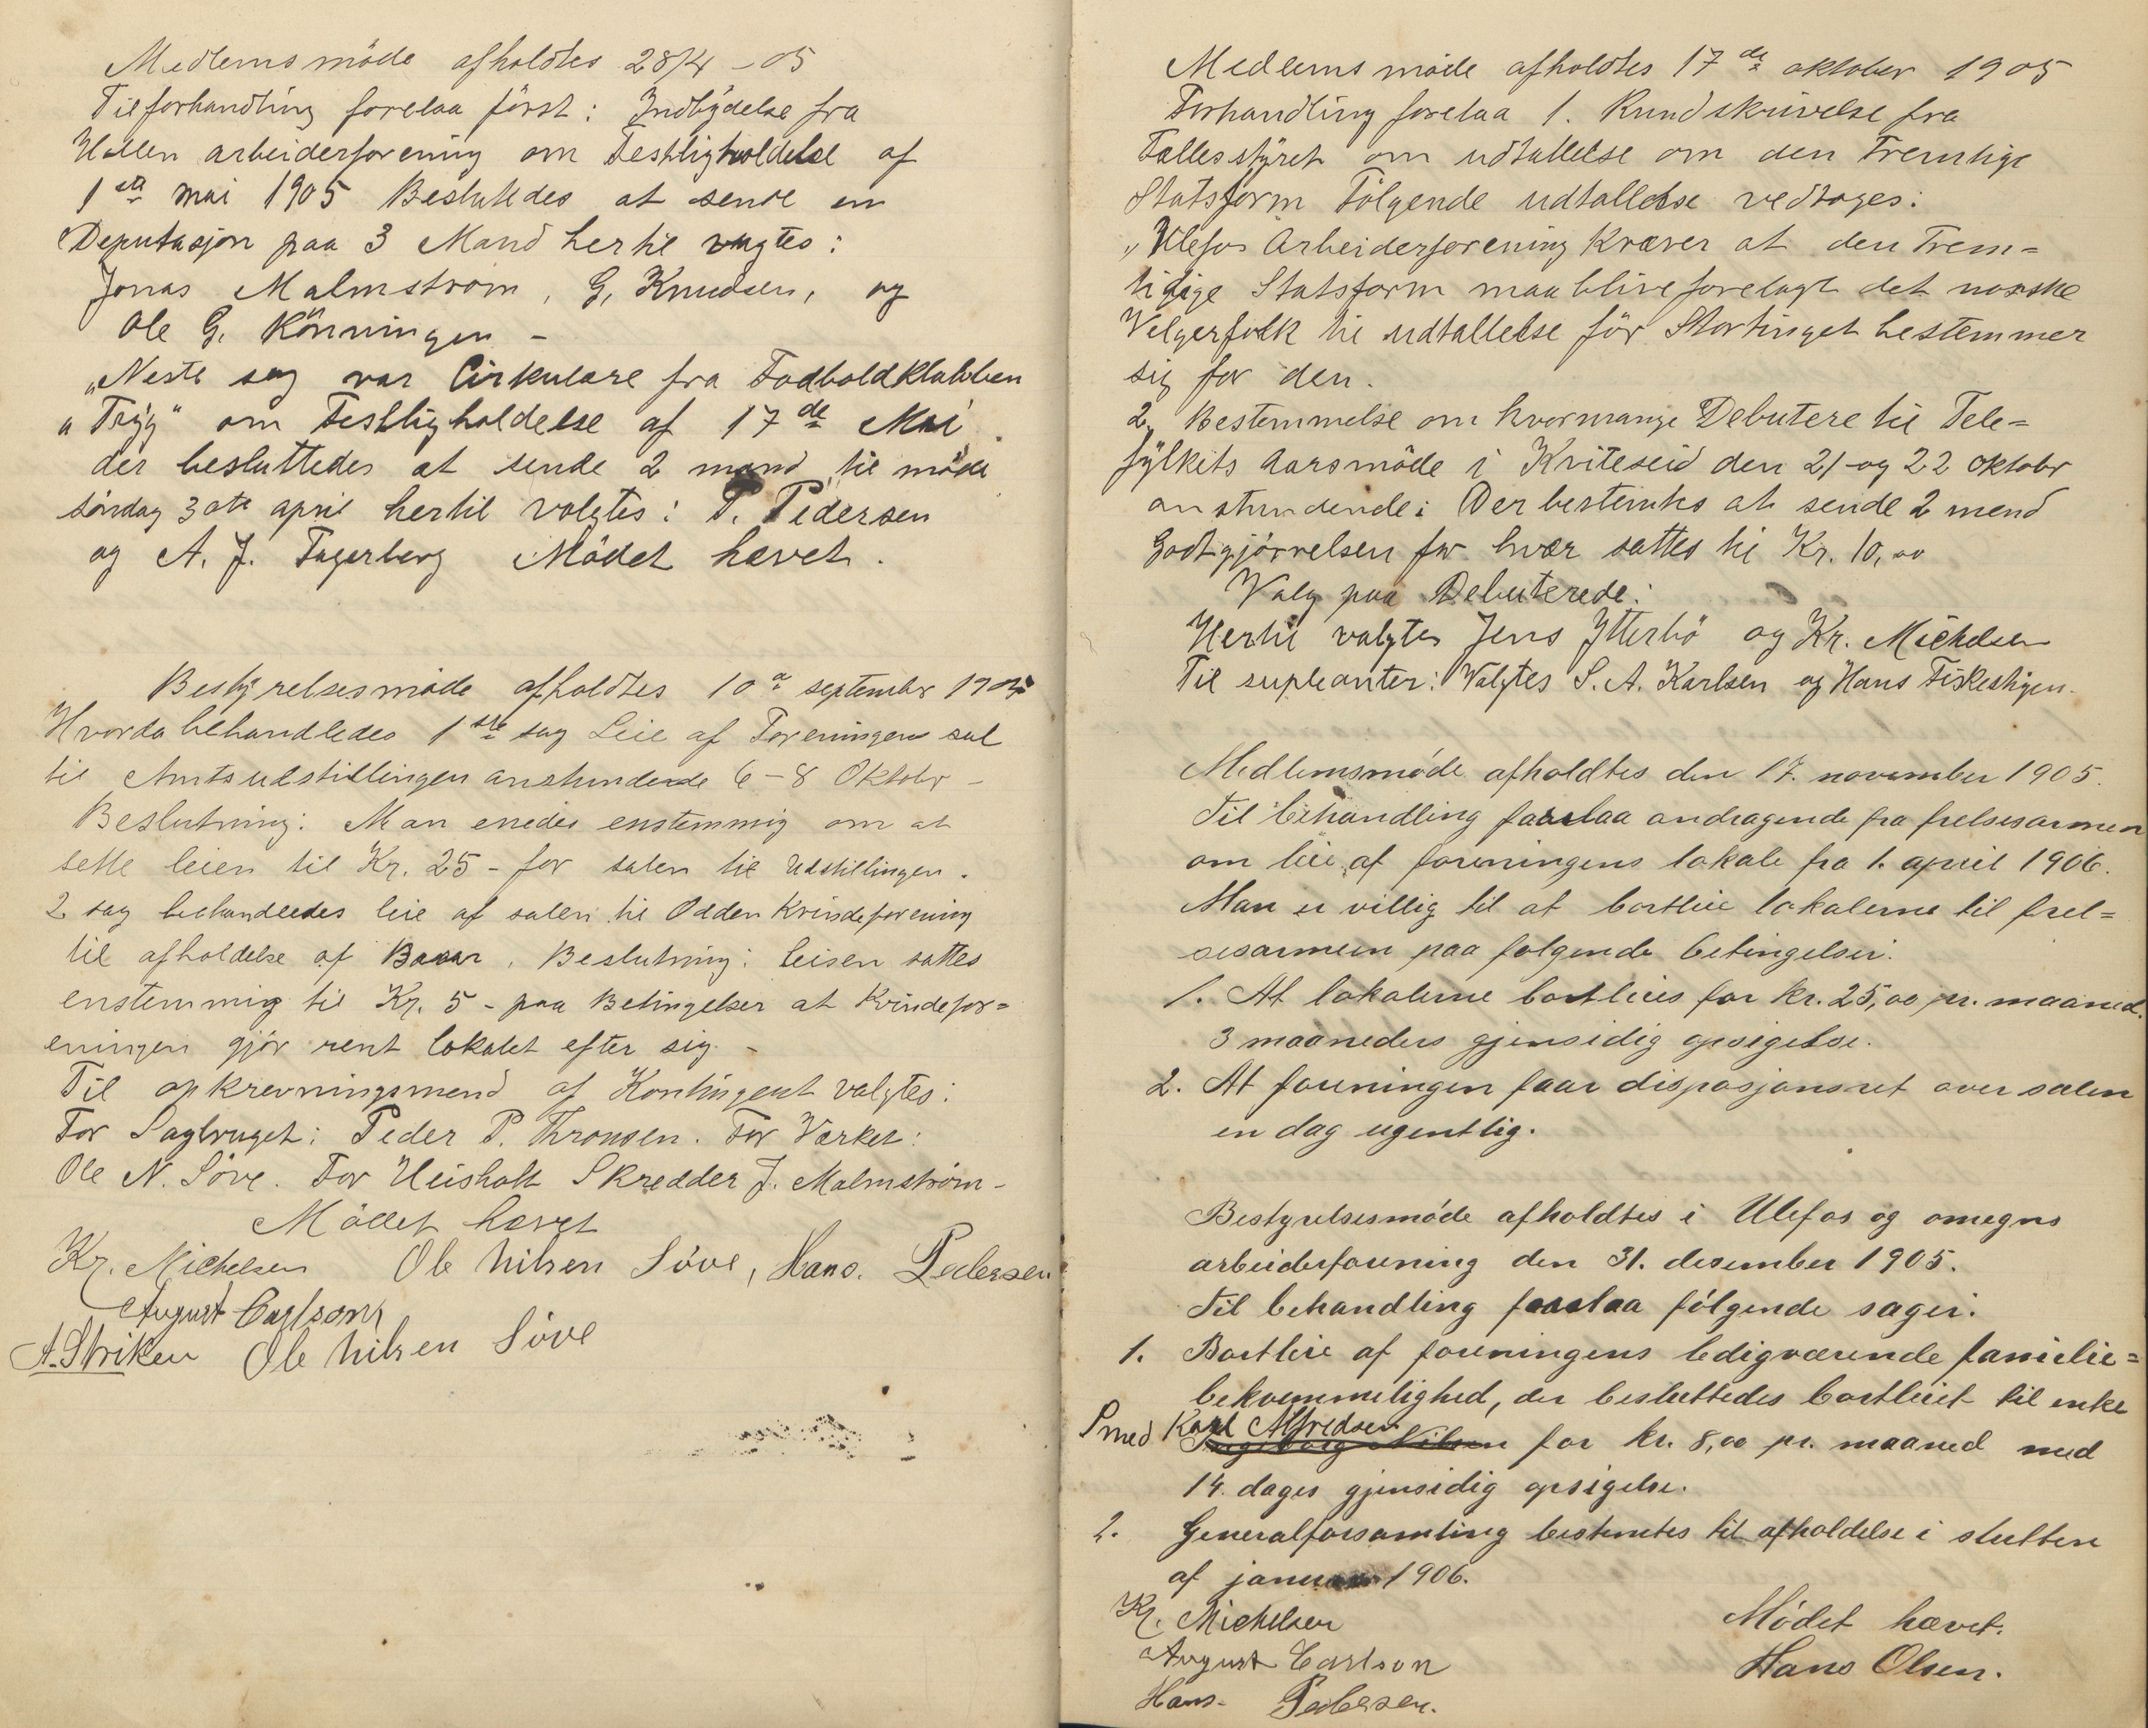 Medlemsmöde afholdtes 28/4 - 05
Til forhandling forelaa först: Indbydelse fra
Hollen arbeiderforening om Festligholdelse af
1ste mai 1905 Besluttedes at sende en
Deputasjon paa 3 Mand hertil valgtes:
Jonas Malmstrom, G. Knudsen, og
Ole G. Könningen -
"Neste sag var Cirkulære fra Fodboldklubben
"Tryg" om Festligholdelse af 17de Mai.
der besluttedes at sende 2 mand til möde
söndag 30te april hertil valgtes: P. Pedersen
og A. J. Fagerberg Mödet hævet.
Bestyrelsesmöde afholdtes 10de september 1905
Hvorda behandledes 1ste sag Leie af Foreningens sal
til Amtsudstillingen anstundende 6-8 Oktobr -
Beslutning: Man enedes enstemmig om at
sette leien til Kr. 25 - for salen til Udstillingen.
2 sag behandledes leie af salen til Odden Kvindeforening
til afholdelse af Basar. Beslutning: leisen sattes
enstemmig til Kr. 5 - paa Betingelser at Kvindefor=
eningen gjör rent lokalet efter sig -
Til opkrevningsmend af Kontingent valgtes:
For Sagbruget: Peder P. Thronsen. For Værket:
Ole N. Söve. For Heisholt Skredder J. Malmström -
Mödet hævet
Kr. Michelsen Ole Nilsen Söve, Hans. Pedersen
August Carlson
A. Striken Ole Nilsen Söve
Medlemsmöde afholdtes 17de oktober 1905
Forhandling forelaa 1. Rundskrivelse fra
Fællesstyret om udtallelse om den Fremtige
Statsform Fölgende udtallelse vedtoges:
"Ulefos Arbeiderforening Kræver at den Frem=
tidige Statsform maa blive forelagt det norske
Velgerfolk til udtallelse för Stortinget bestemmer
sig for den.
2, Bestemmelse om hvormange Debutere til Tele=
fylkets Aarsmöde i Kviteseid den 21- og 22 oktobr
anstundende: Der bestemtes at sende 2 mend
Godtgjörrelsen for hver sattes til Kr. 10,00
Valg paa Debuterede:
Hertil valgtes Jens Ytterbö og Kr. Michelsen
Til supleanter: Valgtes S. A. Karlsen og Hans Fiskestigen.
Medlemsmøde afholdtes den 17. november 1905.
Til behandling forelaa andragende fra frelsesarmen
om leie af foreningens lokale fra 1. april 1906.
Man er villig til at bortleie lokalerne til frel=
sesarmeen paa følgende betingelser:
1. At lokalerne bortleies for kr. 25,00 pr. maaned.
3 maaneders gjensidig opsigelse.
2. At foreningen faar disposjonsret over salen
en dag ugentlig.
Bestyrelsesmøde afholdtes i Ulefos og omegns
arbeiderforening den 31. desember 1905.
Til behandling forelaa følgende sager:
1. Bortleie af foreningens ledigværende familie=
bekvemmelighed, der besluttedes bortleiet til enke
Smed Karl Alfredsen
Ingeborg Nilsen for kr. 8,00 pr. maaned med
14. dages gjensidig opsigelse.
2. Generalforsamling bestemtes til afholdelse i slutten
af januar 1906.
Mødet hævet.
Kr. Michelsen
August Carlson
Hans Olsen.
Hans- Pedersen.